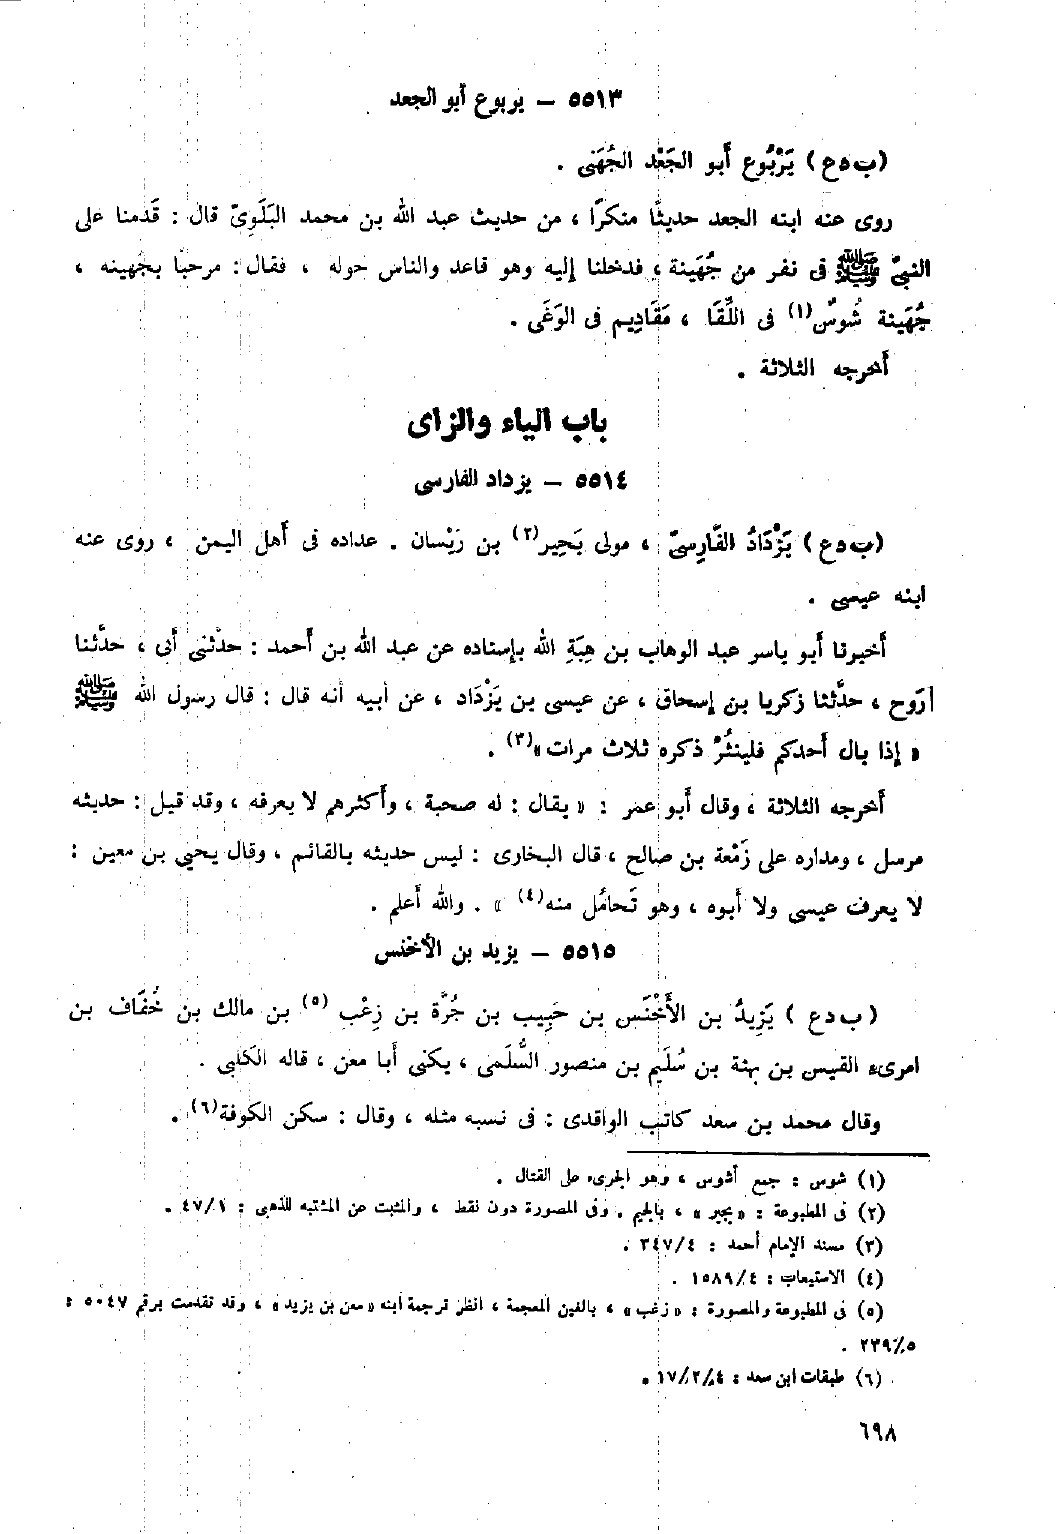 ٥٥١٣ — يربوع أبو الجعد
(ب د ع) يَرْبُوع أَبو الجَعْد الجُهَنى .
روى عنه ابنه الجعد حديثًا منكرًا ، من حديث عبد الله بن محمد البَلَوِىّ قال : قَدمنا على
النبىّ ﷺ فى نفر من جُهَينة ، فدخلنا إليه وهو قاعد والناس حوله ، فقال : مرحبًا بجهينه ،
جُهَينة شُوسٌ(١) فى اللِّقَا ، مَقَادِيم فى الوَغَى .
أَخرجه الثلاثة .
باب الياء والزاى
٥٥١٤ — يزداد الفارسى
(ب د ع) يَزْدَادُ الفَارِسىّ ، مولى بَحِير(٢) بن رَيْسان . عداده فى أَهل اليمن ، روى عنه
ابنه عيسى .
أَخبرنا أَبو ياسر عبد الوهاب بن هِبَةِ الله بإسناده عن عبد الله بن أَحمد : حدّثنى أَبى ، حدَّثنا
رَوح ، حدَّثنا زكريا بن إسحاق ، عن عيسى بن يَزْدَاد ، عن أَبيه أَنه قال : قال رسول الله ﷺ
« إذا بال أَحدكم فلينثُرْ ذكره ثلاث مرات »(٣) .
أَخرجه الثلاثة ، وقال أَبو عمر : « يقال : له صحبة ، وأَكثرهم لا يعرفه ، وقد قيل : حديثه
مرسل ، ومداره على زَمْعة بن صالح ، قال البخارى : ليس حديثه بالقائم ، وقال يحيى بن معين :
لا يعرف عيسى ولا أَبوه ، وهو تَحامُل منه(٤) » . والله أَعلم .
٥٥١٥ — يزيد بن الأخنس
(ب د ع) يَزِيدُ بن الأَخْنَس بن حَبِيب بن جُرَّة بن زِعْب (٥) بن مالك بن خُفَاف بن
امرىء القيس بن بهثة بن سُلَيم بن منصور السُّلَمى ، يكنى أَبا معن ، قاله الكَلبى .
وقال محمد بن سعد كاتب الواقدى : فى نسبه مثله ، وقال : سكن الكوفة(٦) .
(١) شوس : جمع أشوس ، وهو الجرىء على القتال .
(٢) فى المطبوعة : « يجير » ، بالجيم . وفى المصورة دون نقط ، والمثبت عن المشتبه للذهبى : ٤٧/١ .
(٣) مسند الإمام أحمد : ٣٤٧/٤ .
(٤) الاستيعاب : ١٥٨٩/٤ .
(٥) فى المطبوعة والمصورة : « زغب » ، بالغين المعجمة ، انظر ترجمة ابنه « معن بن يزيد » ، وقد تقدمت برقم ٥٠٤٧ :
٢٣٩/٥ .
(٦) طبقات ابن سعد : ١٧/٢/٤ .
٦٩٨